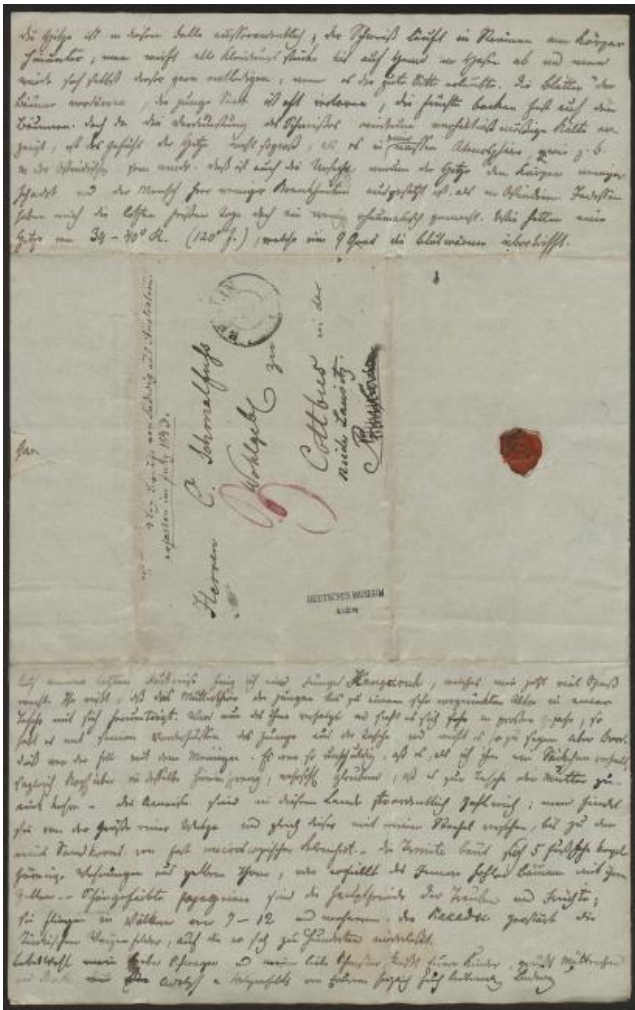 die Hitze ist in diesem Falle ausserordentlich; der Schweiß läuft in Strömen am Körper
herunter; man wirft alle Kleidungsstücke bis auf Hemd u Hosen ab und man
würde sich selbst dieser gern entledigen, wenn es die gute Sitte erlaubte. Die Blätter der
Bäume verdorren, die junge Saat ist oft verloren, die Früchte backen fest auf den
Bäumen. doch da die Verdunstung des Schweißes wiederum verhältnißmäßige Kälte er-
zeugt, ist das Gefühl der Hitze nicht so groß, als es in nassen Atmosphäre, wie z. b.
in der seyn würde. dieß ist auch die Ursache, warum die Hitze dem Körper weniger
schadet und der Mensch hier weniger Krankheiten ausgesetzt ist als in Ostindien. Indessen
haben mich die letzten heißen Tage doch ein wenig rheumatisch gemacht. Wir hatten eine
Hitze von 39-40° R. (120° f.), welche um 9 Grad die Blutwärme übertrifft.
von Ludwig aus Australien.
erhalten im July 1843.
Herren C. Schmalfuss
Wohlgeb zu
Cottbus in der
Nieder Lausitz.
DEUTSCHES MUSEUM
Auf meiner letzten fing ich ein junges Kanguruh, welches mir jetzt viel Spaß
macht. Ihr wißt, daß das Mutterthier die jungen bis zu einem sehr Alter in einer
Tasche mit sich herumträgt. Wird nun das Thier verfolgt und sieht es sich in großer Gefahr, so
mit seinen Vorderfüßen das Junge aus der Tasche und wirft es so zu sagen über Bord.
dieß war der fall mit dem Meinigen. Es war so unschuldig, daß es, als ich ihm ein Säckchen vorhielt
sogleich Kopfüber in dasselbe hineinsprang, glaubend, daß es zur Tasche der Mutter zu-
rück kehre. - die Ameisen sind in diesem Lande zahlreich; man findet
sie von der Größe einer Wespe und gleich dieser mit einem Stachel versehen, bis zu der
eines Sandkorns von fast microscopischer Kleinheit. - die Termite baut 5 füßige kegel-
förmige Wohnungen aus gelbem Thon, oder erfüllt das Innere hohler Bäume mit ihren
Zellen. - Schöngefärbte papagaien sind die Hauptfeinde der Trauben und Früchte;
sie fliegen in Völkern von 7-12 und mehreren. der Kakadu zerstört die
Weizenfelder, auf die er sich zu Hunderten niederläßt.
Lebet Wohl mein lieber Schwager und meine liebe Schwester, küsst Eure Kinder, grüßt Mütterchen
Adolph von Eurem herzlich Euch liebenden Ludwig